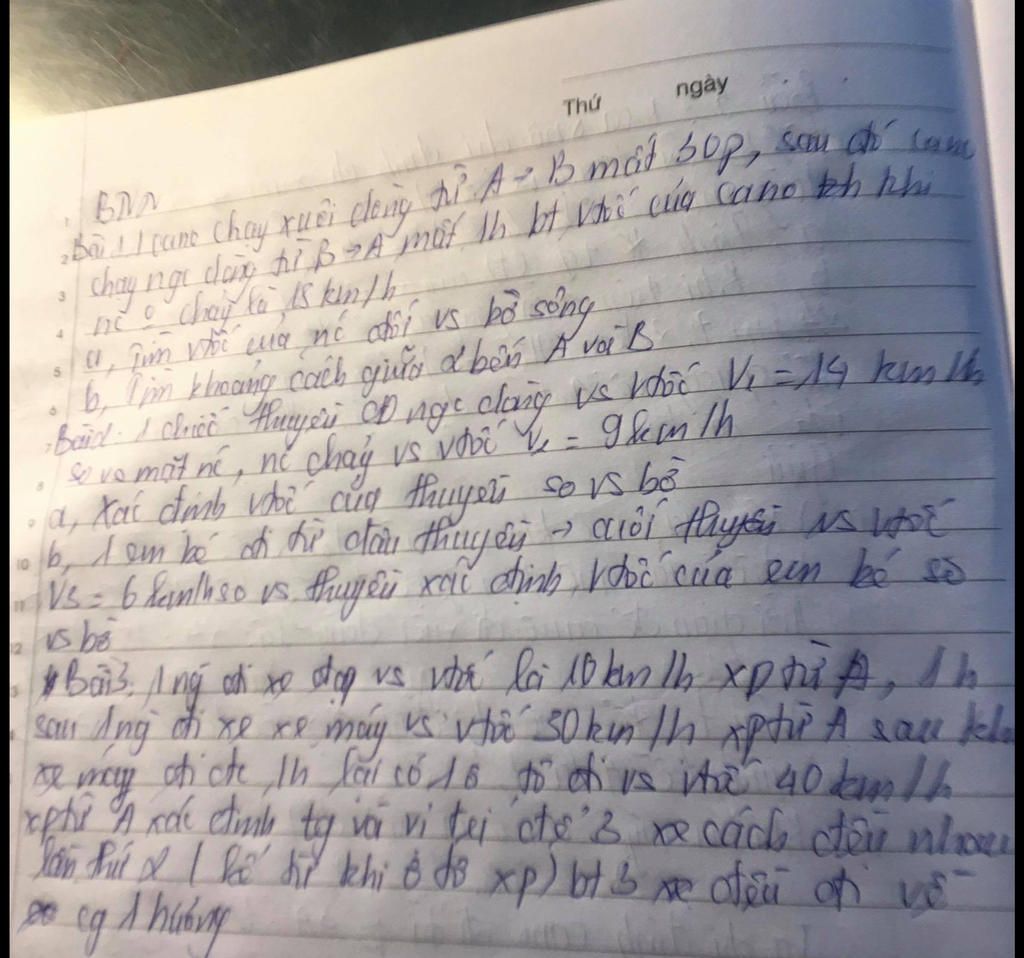 Thứ ngày
BTVN
Bài 1 1 cano chạy xuôi dòng từ A → B mất 30p, sau đó cano
chạy ngc dòng từ B → A mất 1h bt vtốc của cano khi
nc o chảy là 15 km/h
a, Tìm vtốc của nc đối vs bờ sông
b, Tìm khoảng cách giữa 2 bến A và B
Bài 2. 1 chiếc thuyền CĐ ngc dòng vs vtốc V₁ = 14 km/h
so vs mặt nc, nc chảy vs vtốc V₂ = 9 km/h
a, Xác định vtốc của thuyền so vs bờ
b, 1 em bé đi từ đầu thuyền → cuối thuyền vs vtốc
V3 = 6 km/h so vs thuyền xác định vtốc của em bé so
vs bờ
Bài 3. 1 ng đi xe đạp vs vtốc là 10 km/h xp từ A, 1h
sau 1 ng đi xe xe máy vs vtốc 30 km/h xp từ A sau khi
xe máy đi đc 1h lại có 1 ô tô đi vs vtốc 40 km/h
xp từ A xác định tg và vị trí để 3 xe cách đều nhau
lần thứ 2 (kể từ khi ô tô xp) bt 3 xe đều đi về
cg 1 hướng